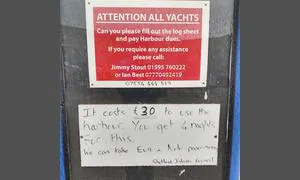 ATTENTION ALL YACHTS
Can you please fill out the log sheet
and pay Harbour dues.
If you require any assistance
please call:
Jimmy Stout 01595 760222
or Ian Best 07770492419
It costs £30 to use the
harbour. You get 4 nights
for this.
We can take
Shetland Islands Council